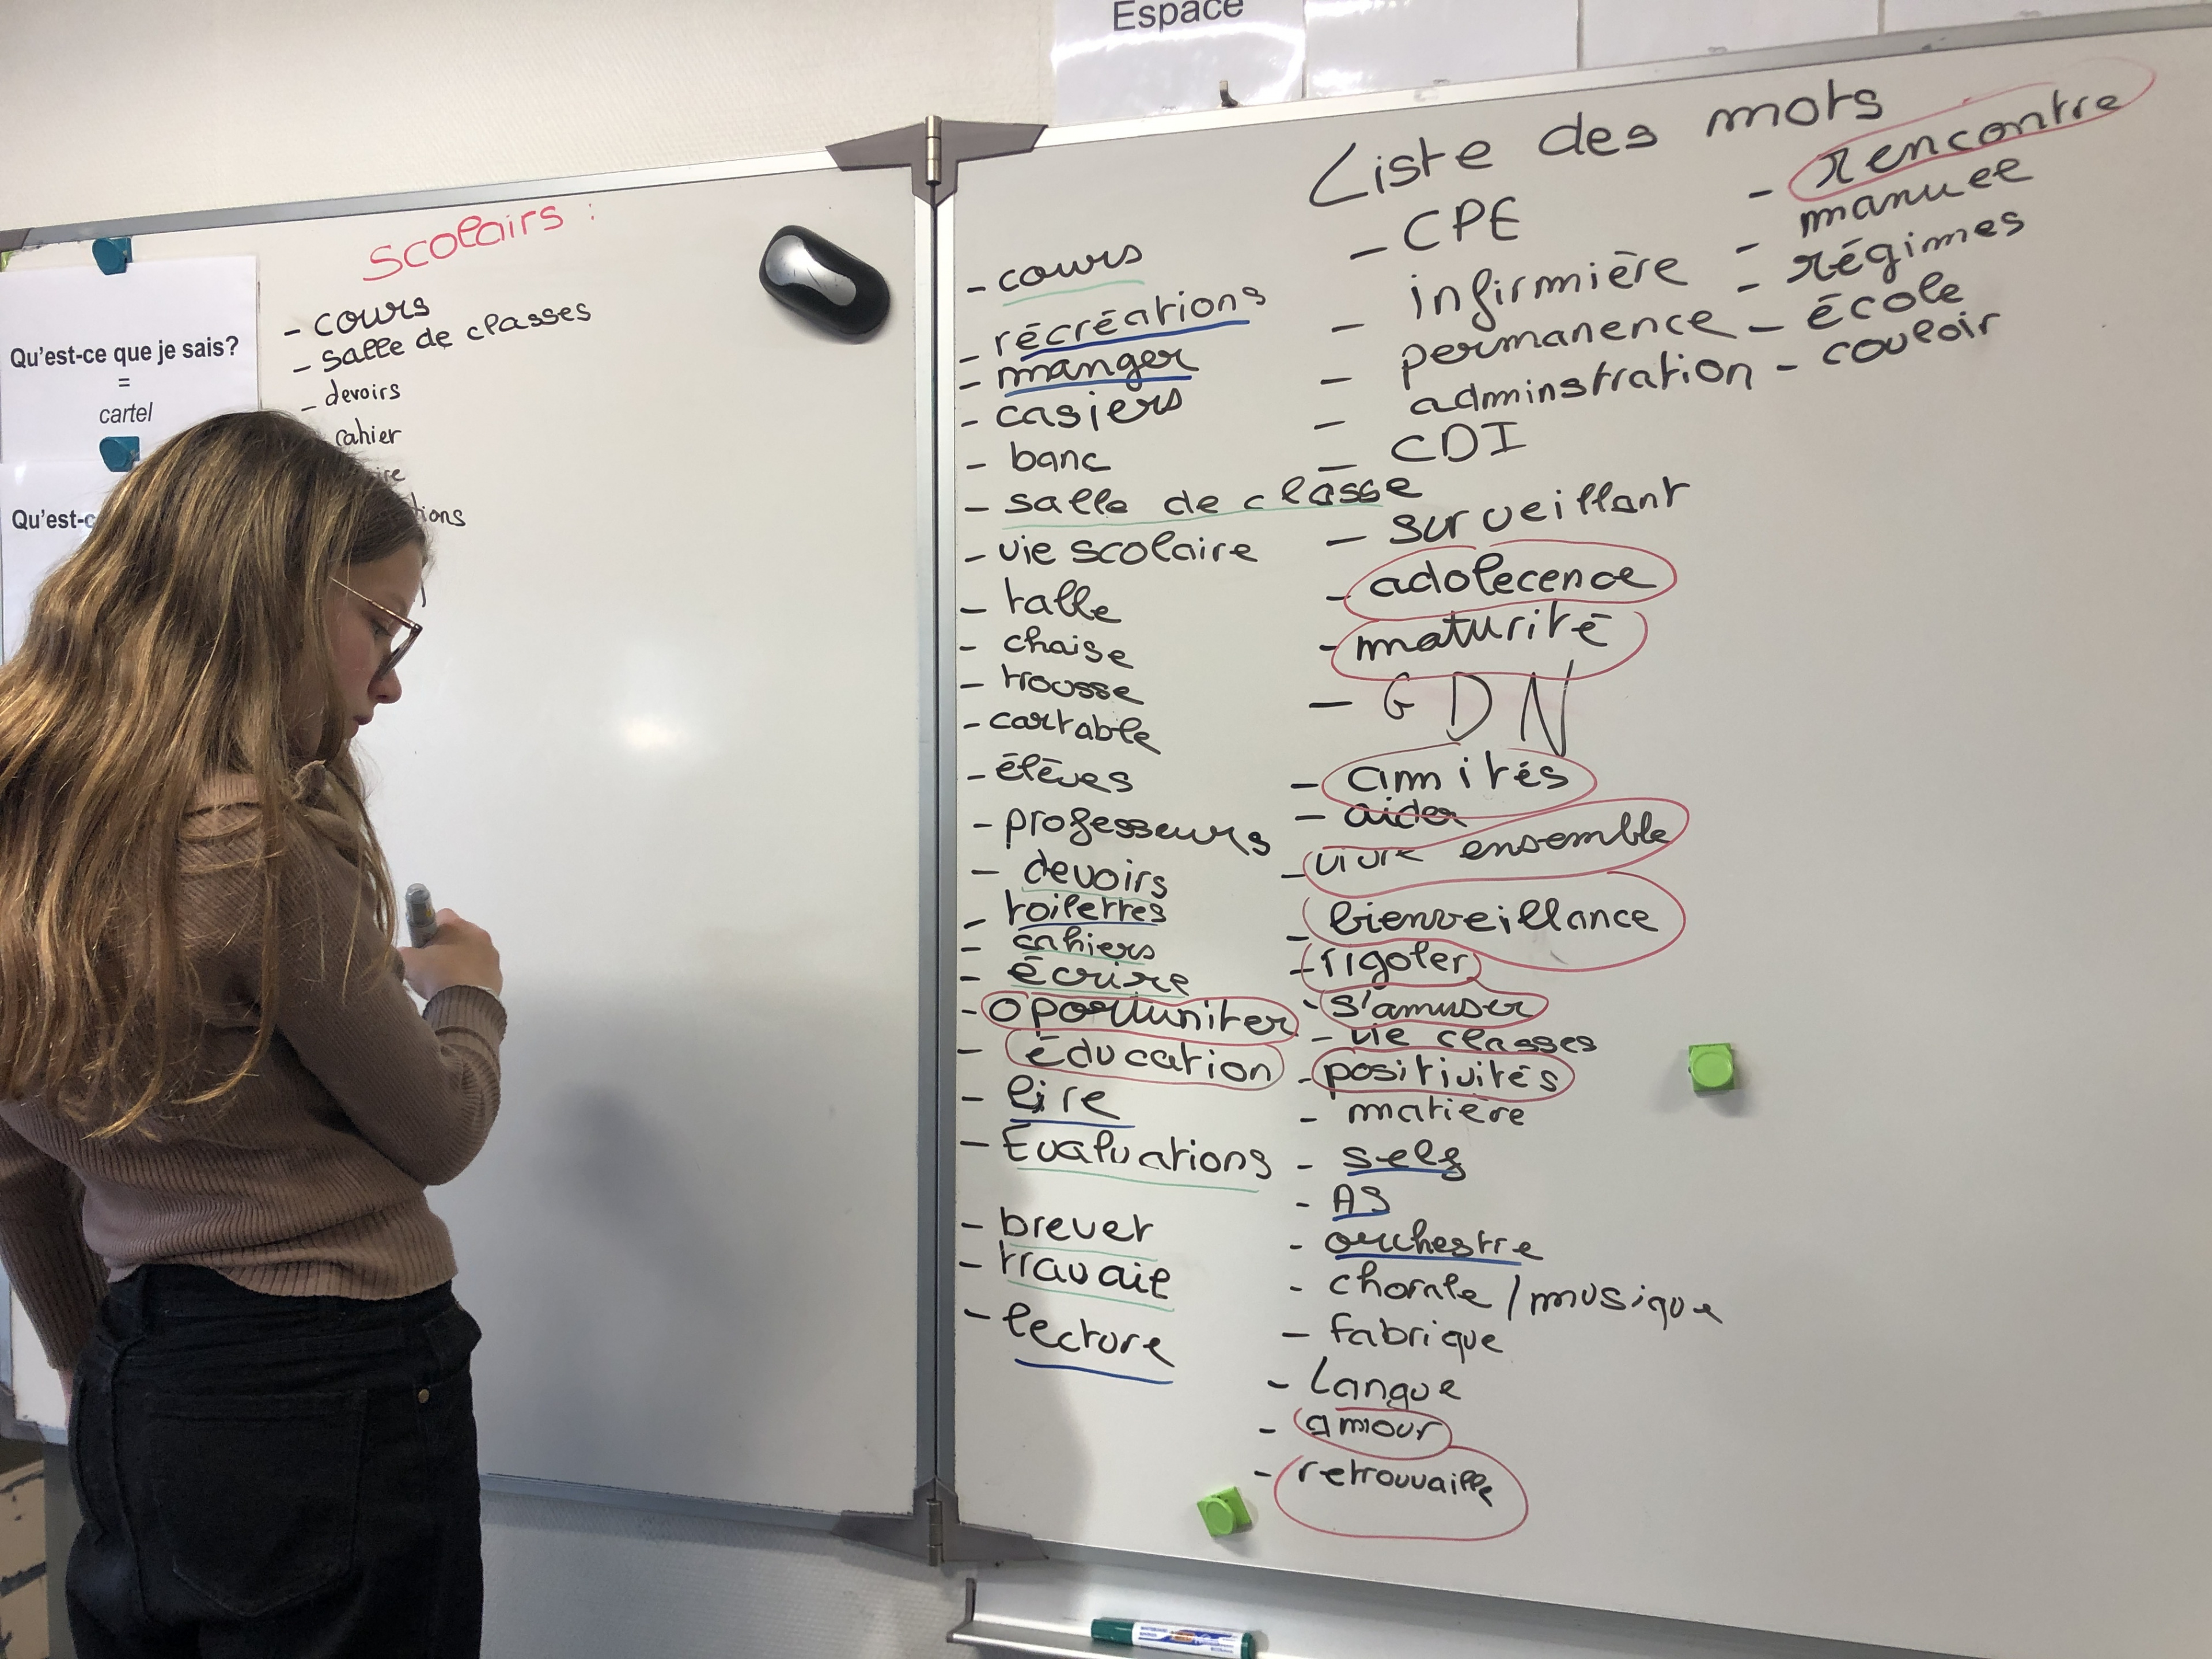 Espace
Scolairs :
- cours
- salle de classes
- devoirs
cahier
ire
tions
Qu'est-ce que je sais?
=
cartel
Qu'est-c
Liste des mots
- cours
- récréations
- manger
- casiers
- banc
- salle de classe
- vie scolaire
- talle
- chaise
- trousse
- cartable
- élèves
- professeurs
- devoirs
- toilettes
- cahiers
- écrire
- oportuniter
- éducation
- lire
- Evaluations
- brevet
- travail
- lecture
- CPE
- infirmière
- permanence
- adminstration
- CDI
- surveillant
- adolecence
- maturité
- GDN
- amités
- aider
- vivre ensemble
- bienveillance
- rigoler
- s'amuser
- vie classes
- positivités
- matière
- self
- AS
- orchestre
- chorale / musique
- fabrique
- Langue
- amour
- retrouvaille
- rencontre
- manuel
- régimes
- école
- couloir